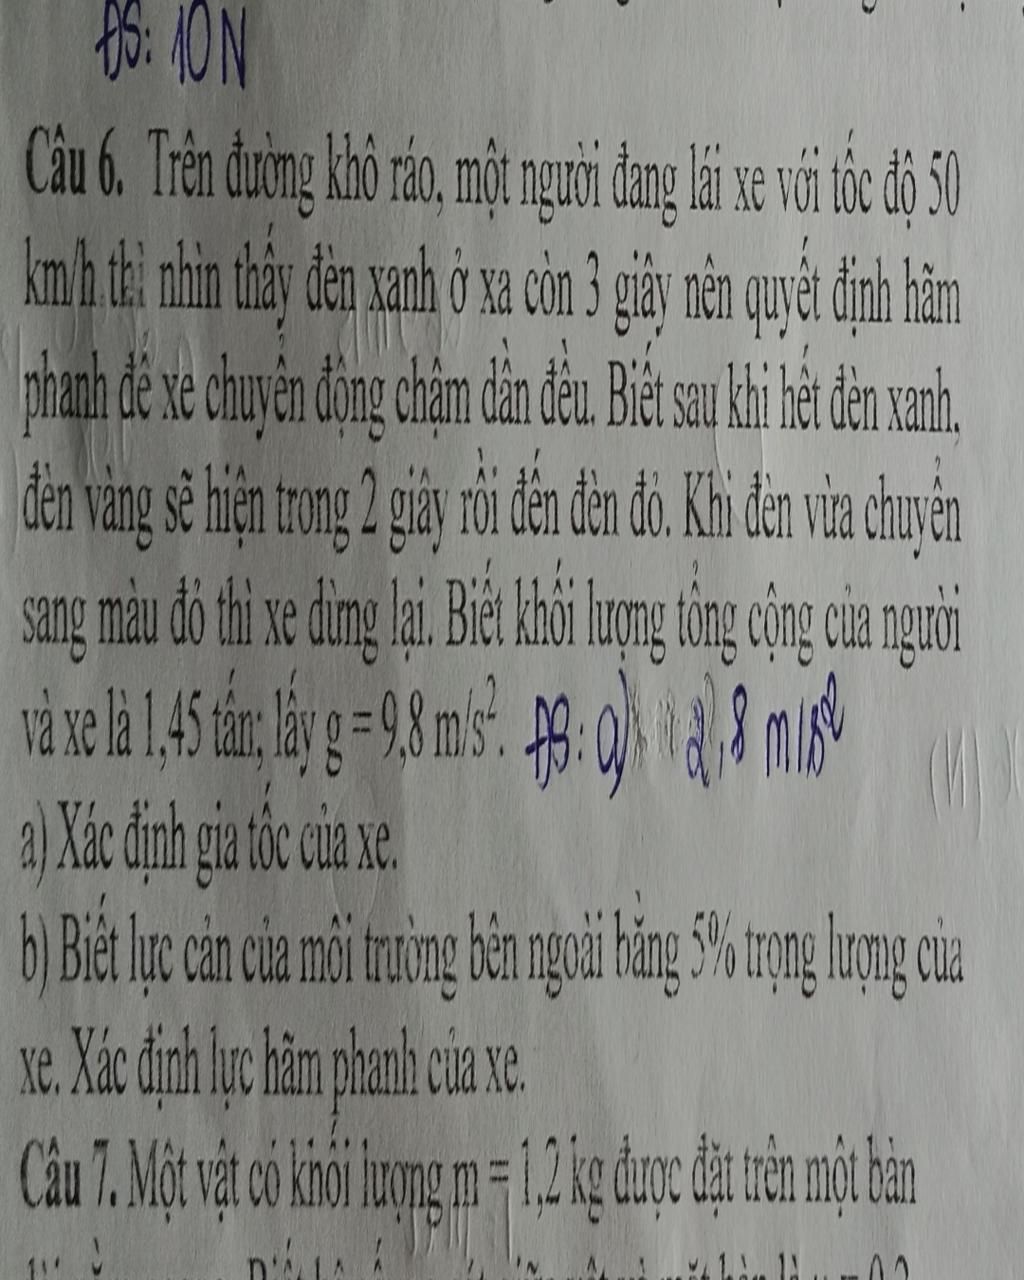 ĐS: 10 N
Câu 6. Trên đường khô ráo, một người đang lái xe với tốc độ 50
km/h thì nhìn thấy đèn xanh ở xa còn 3 giây nên quyết định hãm
phanh để xe chuyển động chậm dần đều. Biết sau khi hết đèn xanh,
đèn vàng sẽ hiện trong 2 giây rồi đến đèn đỏ. Khi đèn vừa chuyển
sang màu đỏ thì xe dừng lại. Biết khối lượng tổng cộng của người
và xe là 1,45 tấn; lấy g = 9,8 m/s². ĐS: a) 2,8 m/s²
a) Xác định gia tốc của xe.
b) Biết lực cản của môi trường bên ngoài bằng 5% trọng lượng của
xe. Xác định lực hãm phanh của xe.
Câu 7. Một vật có khối lượng m = 1,2 kg được đặt trên một bàn